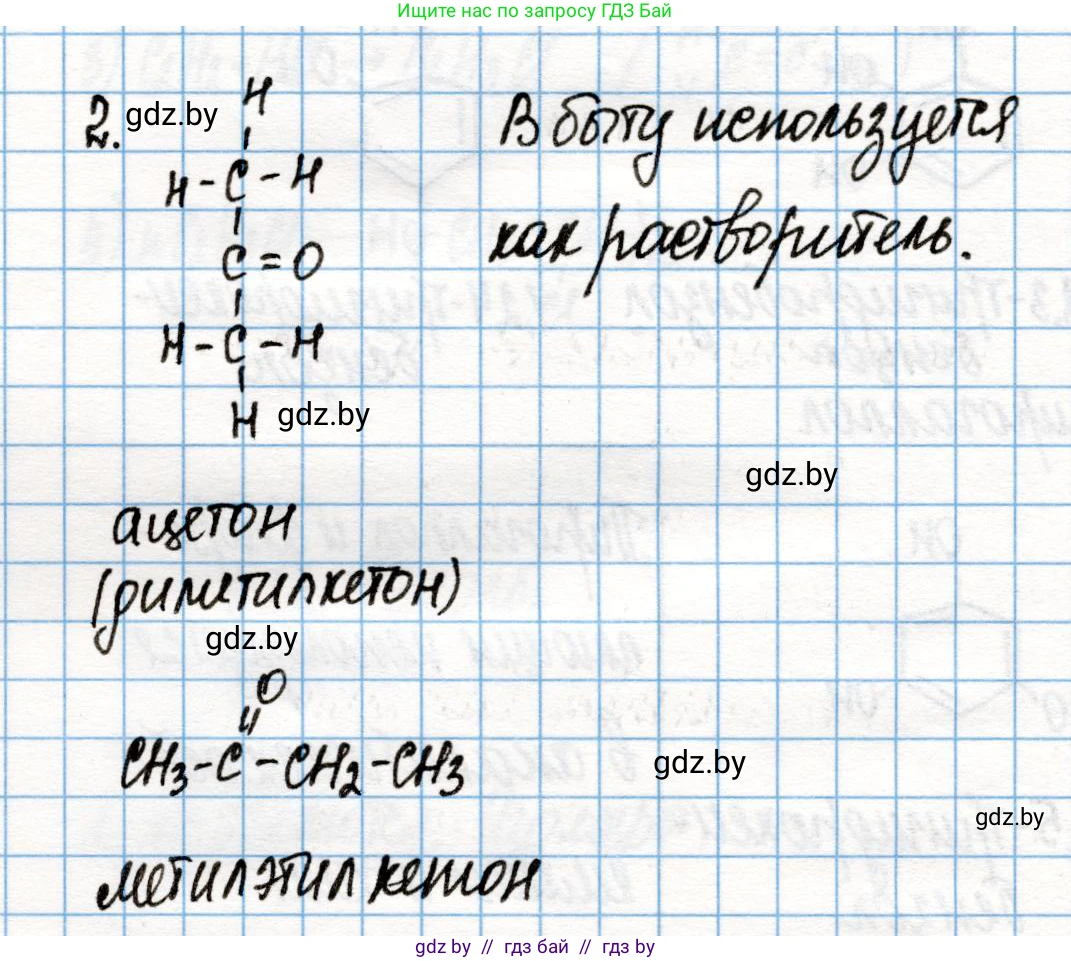 Ищите нас по запросу ГДЗ Бай
2. gdz.by
H
H-C-H
C=O
H-C-H
H
В быту используется
как растворитель.
gdz.by
gdz.by
ацетон
(диметилкетон)
gdz.by
O
CH3-C-CH2-CH3
gdz.by
gdz.by
метилэтил кетон
gdz.by // гдз бай // гдз by